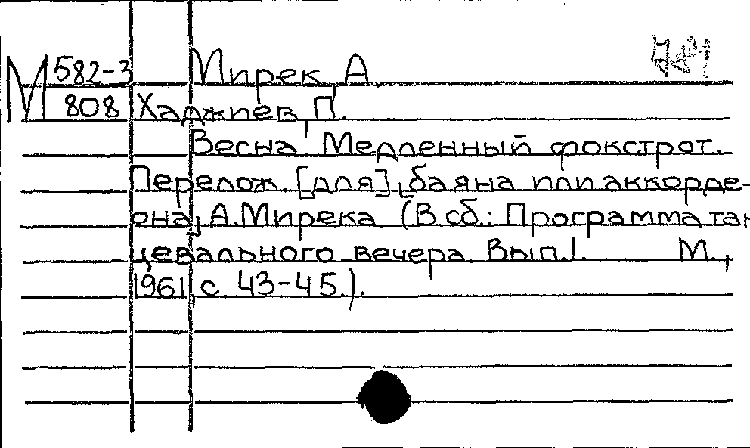 М 582-3 Мирек, А.
808 Хаджиев, П.
Весна. Медленный фокстрот.
Перелож. [для] баяна или аккорде-
она, А. Мирека (В сб.: Программа тан-
цевального вечера. Вып. 1. М.,
1961, с. 43-45.).